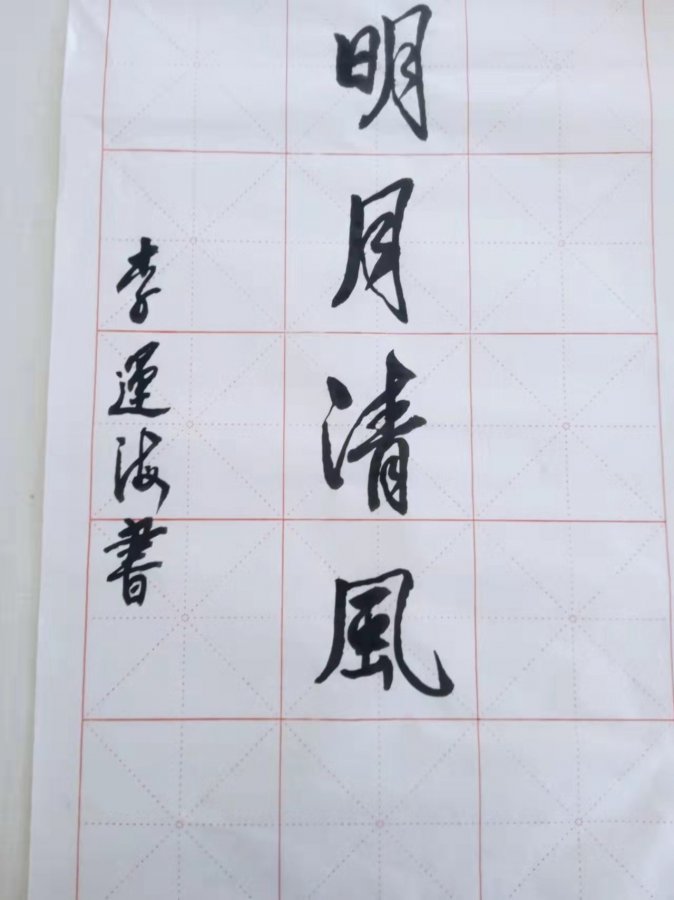 明月清風
李運海書